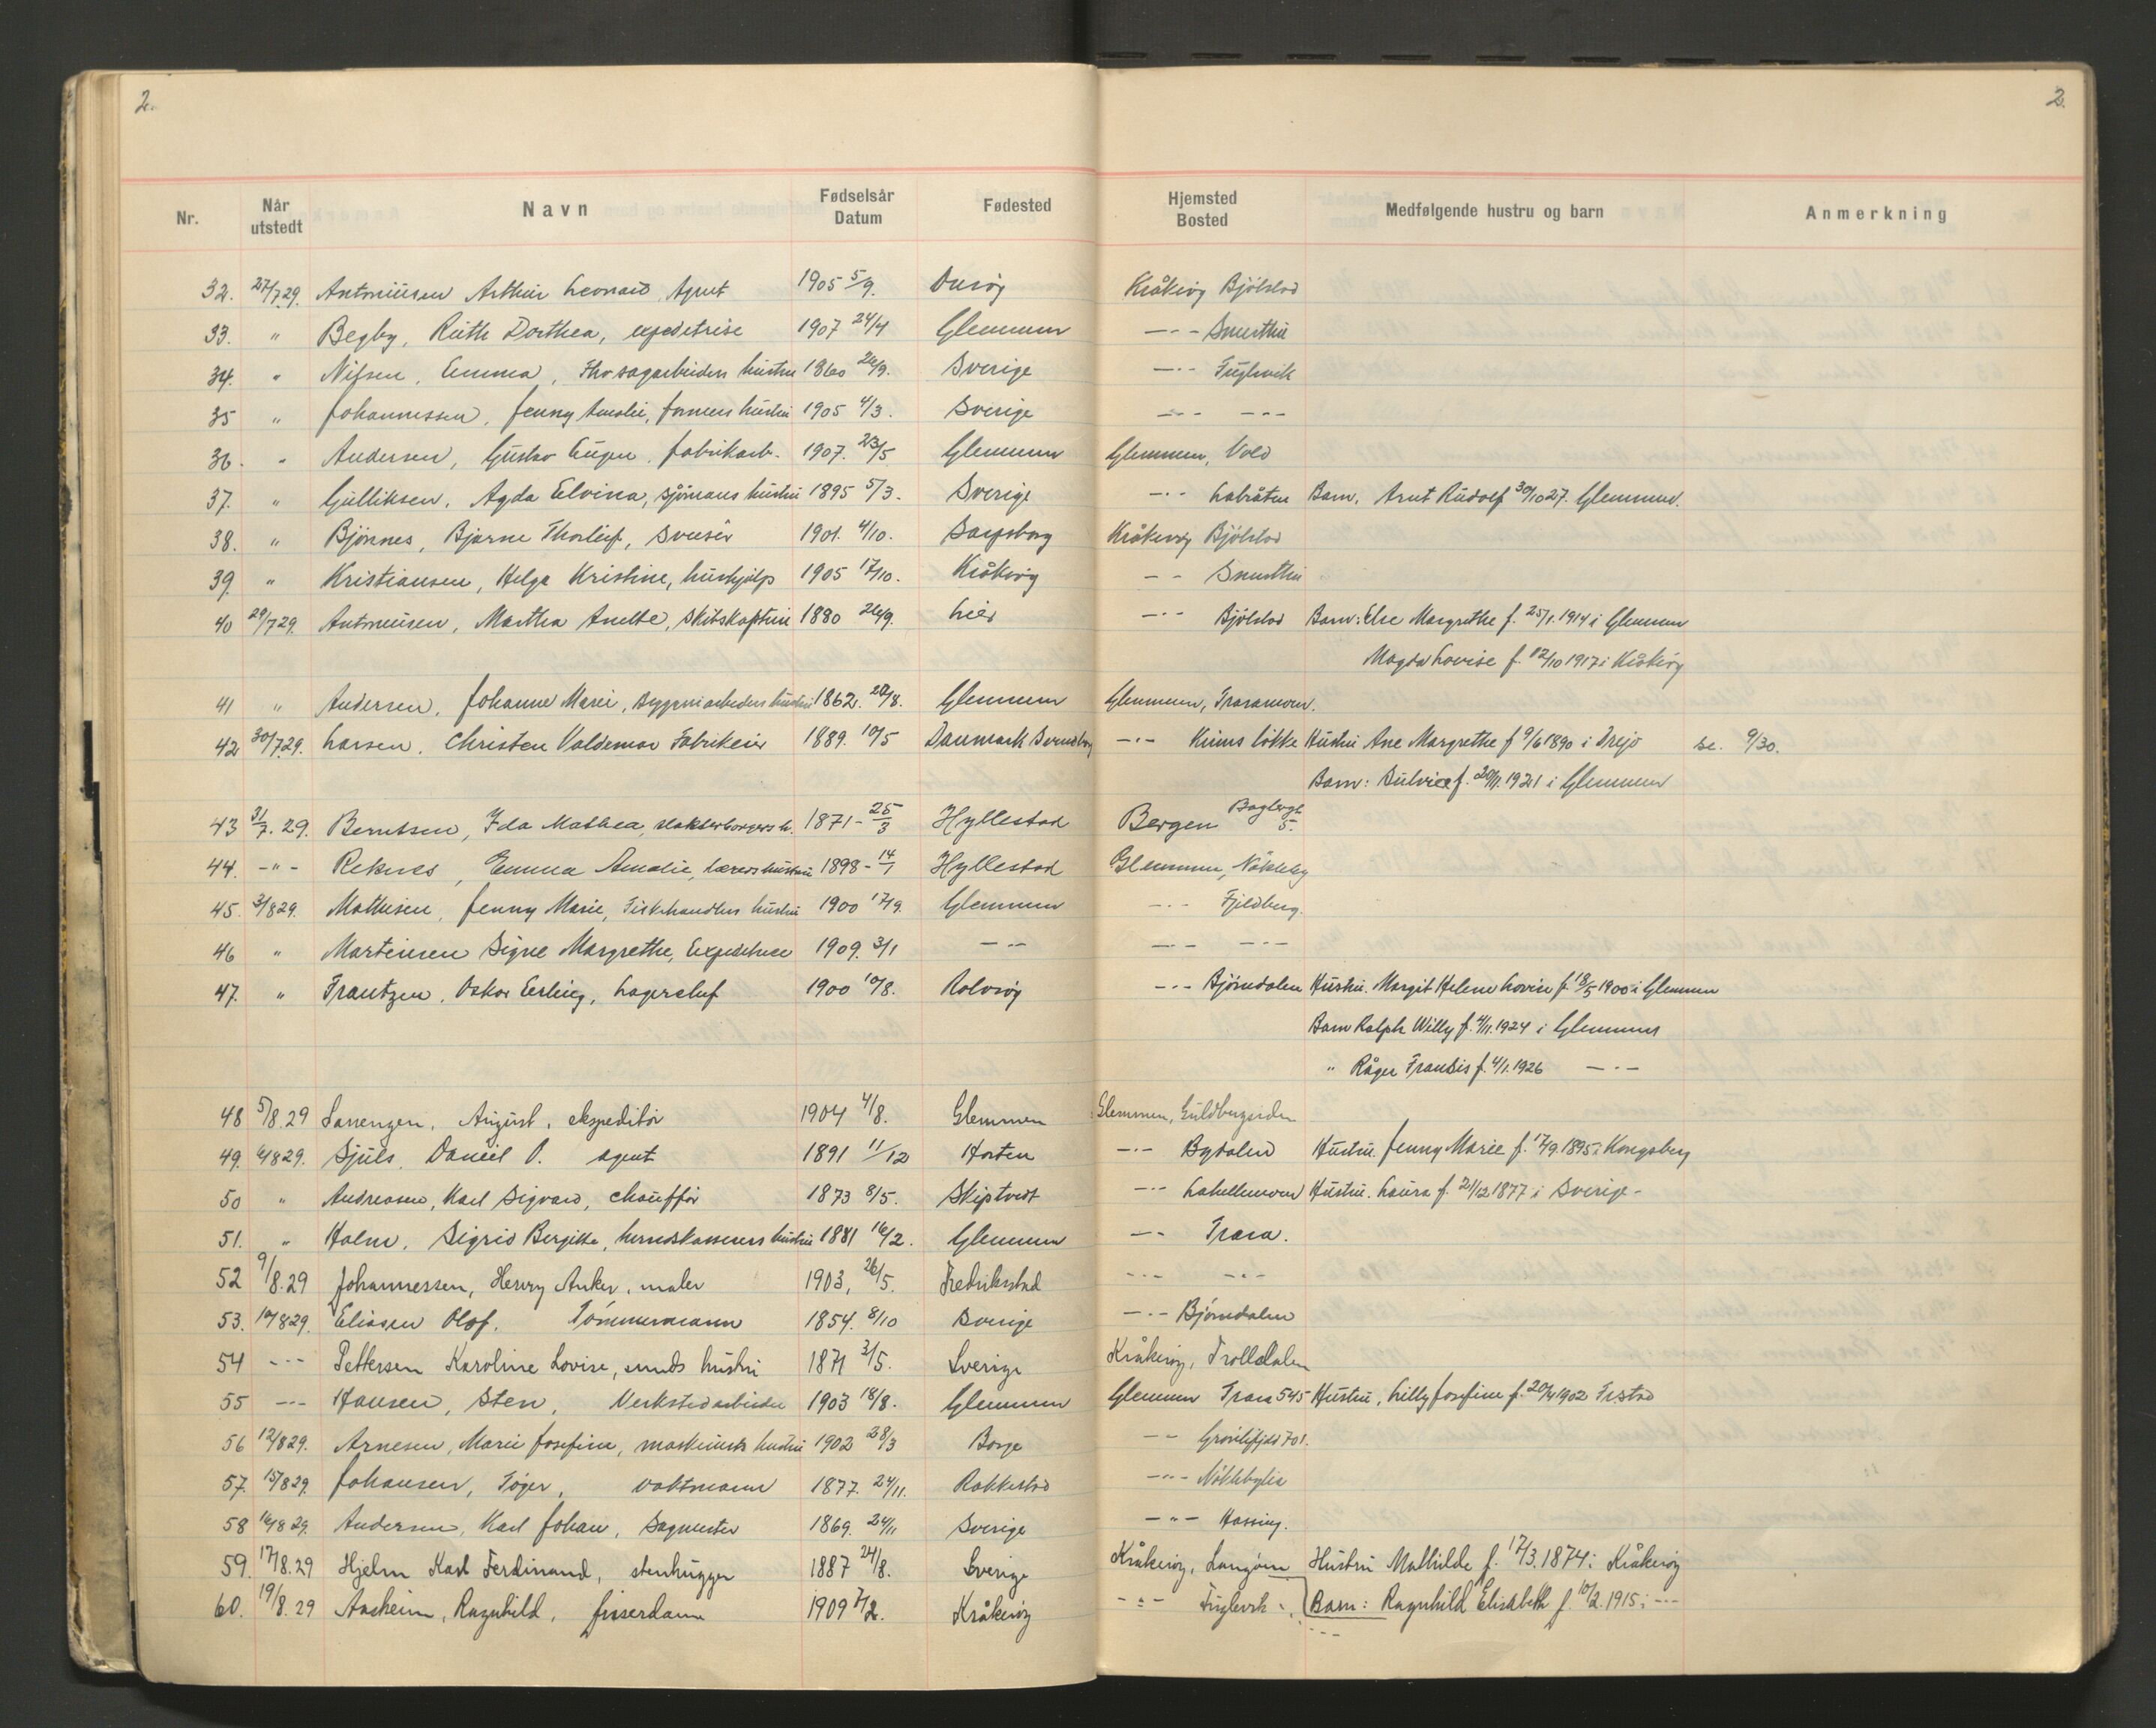 2.
2.
Nr. Når utstedt Navn Fødselsår Datum Fødested Hjemsted Bosted Medfølgende hustru og barn Anmerkning
32. 27/7.29. Antoniusen Arthur Leonard, Agent 1905 5/9. Onsøy Kråkerøy Bjölstad
33. " Begby, Ruth Dorthea, expeditrise 1907 24/4 Glemmen —"— Smerthu
34. " Nilsen, Emma, Fhv. sagarbeiders hustru 1860 26/9. Sverige —"— Fuglevik
35 " Johannessen, Jenny Amalie, formers hustru 1905 4/3. Sverige —"— —"—
36. " Andersen, Gustav Eugen, fabrikarb. 1907. 23/5 Glemmen Glemmen, Vold
37. " Gulliksen, Agda Elvina, sjömans hustru 1895 5/3. Sverige —"— Labråten Barn. Arnt Rudolf 30/10 27. Glemmen.
38. " Bjönnes, Bjarne Thorleif, Sveiser 1901. 4/10. Sarpsborg Kråkerøy Bjölstad
39. " Kristiansen, Helga Kristine, hushjelp 1905 17/10. Kråkerøy — — Smerthu
40 29/7 29. Antoniusen, Martha Anette, Skibskaptein 1880 26/9. Lier —"— Bjölstad Barn: Else Margrethe f. 25/1. 1914 i Glemmen
Magda Lovise f. 12/10 1917 i Kråkerøy
41 " Andersen, Johanne Marie, Bryggeriarbeiders hustru 1862. 20/8. Glemmen Glemmen, Traramoen.
42 30/7.29. Larsen, Christen Valdemar Fabrikeier 1889. 10/5 Danmark Svendborg —"— Kiins løkke Hustru Ane Margrethe f 9/6 1890 i Drejø se. 9/30.
Barn: Sulvia f. 20/11. 1921 i Glemmen
43 31/7. 29. Berntsen, Ida Mathea, slakterborgers h. 1871 - 25/3 Hyllestad Bergen 5.
44. —"— Reknes, Emma Amalie, Lærers hustru 1898 - 14/1 Hyllestad Glemmen, Nökleby
45. 3/8 29. Mathisen, Jenny Marie, Fiskehandlers hustru 1900 17/9. Glemmen —"— Fjeldberg.
46 " Martinsen Signe Margrethe, Expeditrice 1909. 3/1 —"— —"— —"—
47. " Frantzen, Oskar Erling, Lagerchef 1900 10/8. Rolvsøy —"— Björndalen Hustru. Margit Helene Lovise f. 18/5 1900 i Glemmen
Barn Ralph Willy f. 4/11. 1924 i Glemmen
" Råger Frandis f. 4/1. 1926 —"—
48 5/8.29 Sanengen, August, ekspeditør 1904 4/8. Glemmen Glemmen, Guldbergsiden
49. 6/8 29. Sjuls, Daniel O. agent 1891 11/12 Horten —"— Bydalen Hustru. Jenny Marie f. 17/9. 1895 i Kongsberg
50 " Andreasen, Karl Sigvard, chauffør 1873 8/5. Skiptvedt —"— Lahellemoen Hustru. Laura f. 21/12 1877 i Sverige -
51. " Holm, Sigrid Bergitte, herredskasserers hustru 1881 16/2. Glemmen —"— Trara.
52 9/8.29 Johannessen, Henry Anker, maler 1903, 26/5. Fredrikstad —"— —"—
53. 10/8 29. Eliasen Olof. Tömmermann 1854. 8/10 Sverige —"— Björndalen
54 —"— Pettersen Karoline Lovise, smeds hustru 1871 3/5. Sverige Kråkerøy, Trolldalen
55 —"— Hansen, Sten, Verkstedarbeider 1903 18/8. Glemmen Glemmen Trara 545 Hustru. Lilly Josefine f. 20/4 1902 Fr.stad
56 12/8 29. Arnesen, Marie Josefine, maskinists hustru 1902 28/3 Borge —"— Grönlifjeld 701.
57. 15/8 29. Johansen, Töger, vaktmann 1877. 24/11. Rakkestad —"— Nökkbylia
58 16/8 29. Andersen, Karl Johan, Sagmester 1869. 24/11 Sverige —"— Hassing.
59. 17/8.29 Hjelm Karl Ferdinand, stenhugger 1887 24/8. Sverige Kråkerøy, Langøen Hustru Mathilde f. 17/3. 1874 i Kråkerøy
60. 19/8. 29 Aasheim, Ragnhild, frisserdame 1909 7/2. Kråkerøy —"— Fuglevik Barn: Ragnhild Elisabeth f. 10/2. 1915 i —"—